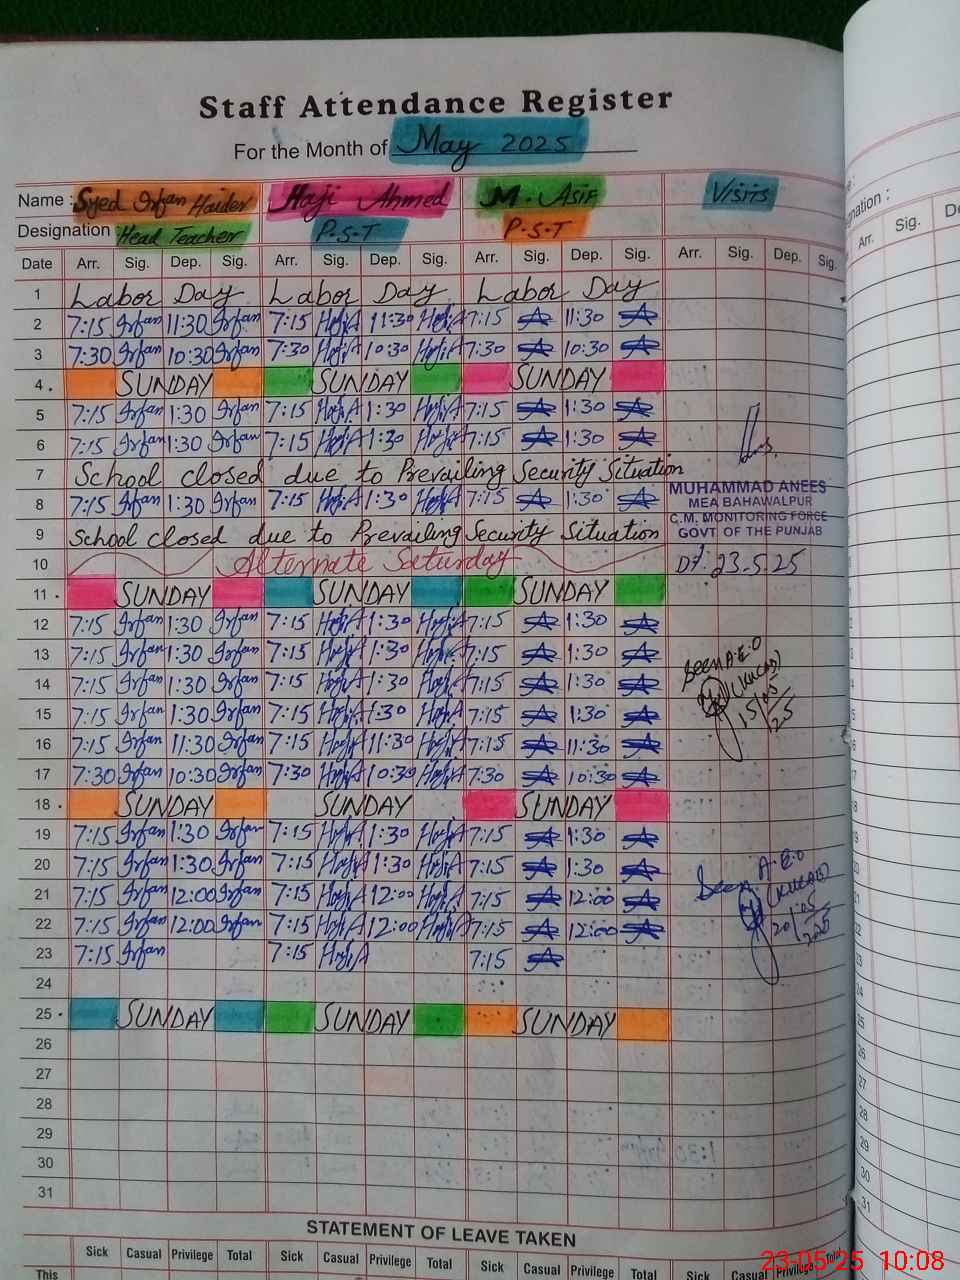 Staff Attendance Register
For the Month of May 2025
Name : Syed Irfan Haider Haji Ahmed M. Asif Visits
Designation Head Teacher P.S.T P.S.T
Date Arr. Sig. Dep. Sig. Arr. Sig. Dep. Sig. Arr. Sig. Dep. Sig. Arr. Sig. Dep. Sig.
1 Labor Day Labor Day Labor Day
2 7:15 Irfan 11:30 Irfan 7:15 HajiA 11:30 HajiA 7:15 A 11:30 A
3 7:30 Irfan 10:30 Irfan 7:30 HajiA 10:30 HajiA 7:30 A 10:30 A
4 . SUNDAY SUNDAY SUNDAY
5 7:15 Irfan 1:30 Irfan 7:15 HajiA 1:30 HajiA 7:15 A 1:30 A
6 7:15 Irfan 1:30 Irfan 7:15 HajiA 1:30 HajiA 7:15 A 1:30 A
7 School closed due to Prevailing Security Situation
8 7:15 Irfan 1:30 Irfan 7:15 HajiA 1:30 HajiA 7:15 A 1:30 A
9 School closed due to Prevailing Security Situation
10 Alternate Saturday
11 . SUNDAY SUNDAY SUNDAY
12 7:15 Irfan 1:30 Irfan 7:15 HajiA 1:30 HajiA 7:15 A 1:30 A
13 7:15 Irfan 1:30 Irfan 7:15 HajiA 1:30 HajiA 7:15 A 1:30 A
14 7:15 Irfan 1:30 Irfan 7:15 HajiA 1:30 HajiA 7:15 A 1:30 A
15 7:15 Irfan 1:30 Irfan 7:15 HajiA 1:30 HajiA 7:15 A 1:30 A
16 7:15 Irfan 11:30 Irfan 7:15 HajiA 11:30 HajiA 7:15 A 11:30 A
17 7:30 Irfan 10:30 Irfan 7:30 HajiA 10:30 HajiA 7:30 A 10:30 A
18 . SUNDAY SUNDAY SUNDAY
19 7:15 Irfan 1:30 Irfan 7:15 HajiA 1:30 HajiA 7:15 A 1:30 A
20 7:15 Irfan 1:30 Irfan 7:15 HajiA 1:30 HajiA 7:15 A 1:30 A
21 7:15 Irfan 12:00 Irfan 7:15 HajiA 12:00 HajiA 7:15 A 12:00 A
22 7:15 Irfan 12:00 Irfan 7:15 HajiA 12:00 HajiA 7:15 A 12:00 A
23 7:15 Irfan 7:15 HajiA 7:15 A
24
25 . SUNDAY SUNDAY SUNDAY
26
27
28
29
30
31
MUHAMMAD ANEES
MEA BAHAWALPUR
C.M. MONITORING FORCE
GOVT OF THE PUNJAB
Dt: 23.5.25
Seen A.E.O
15/05/25
Seen A.E.O
20/05/2025
STATEMENT OF LEAVE TAKEN
Sick Casual Privilege Total Sick Casual Privilege Total Sick Casual Privilege Total
This
23-05-25 10:08